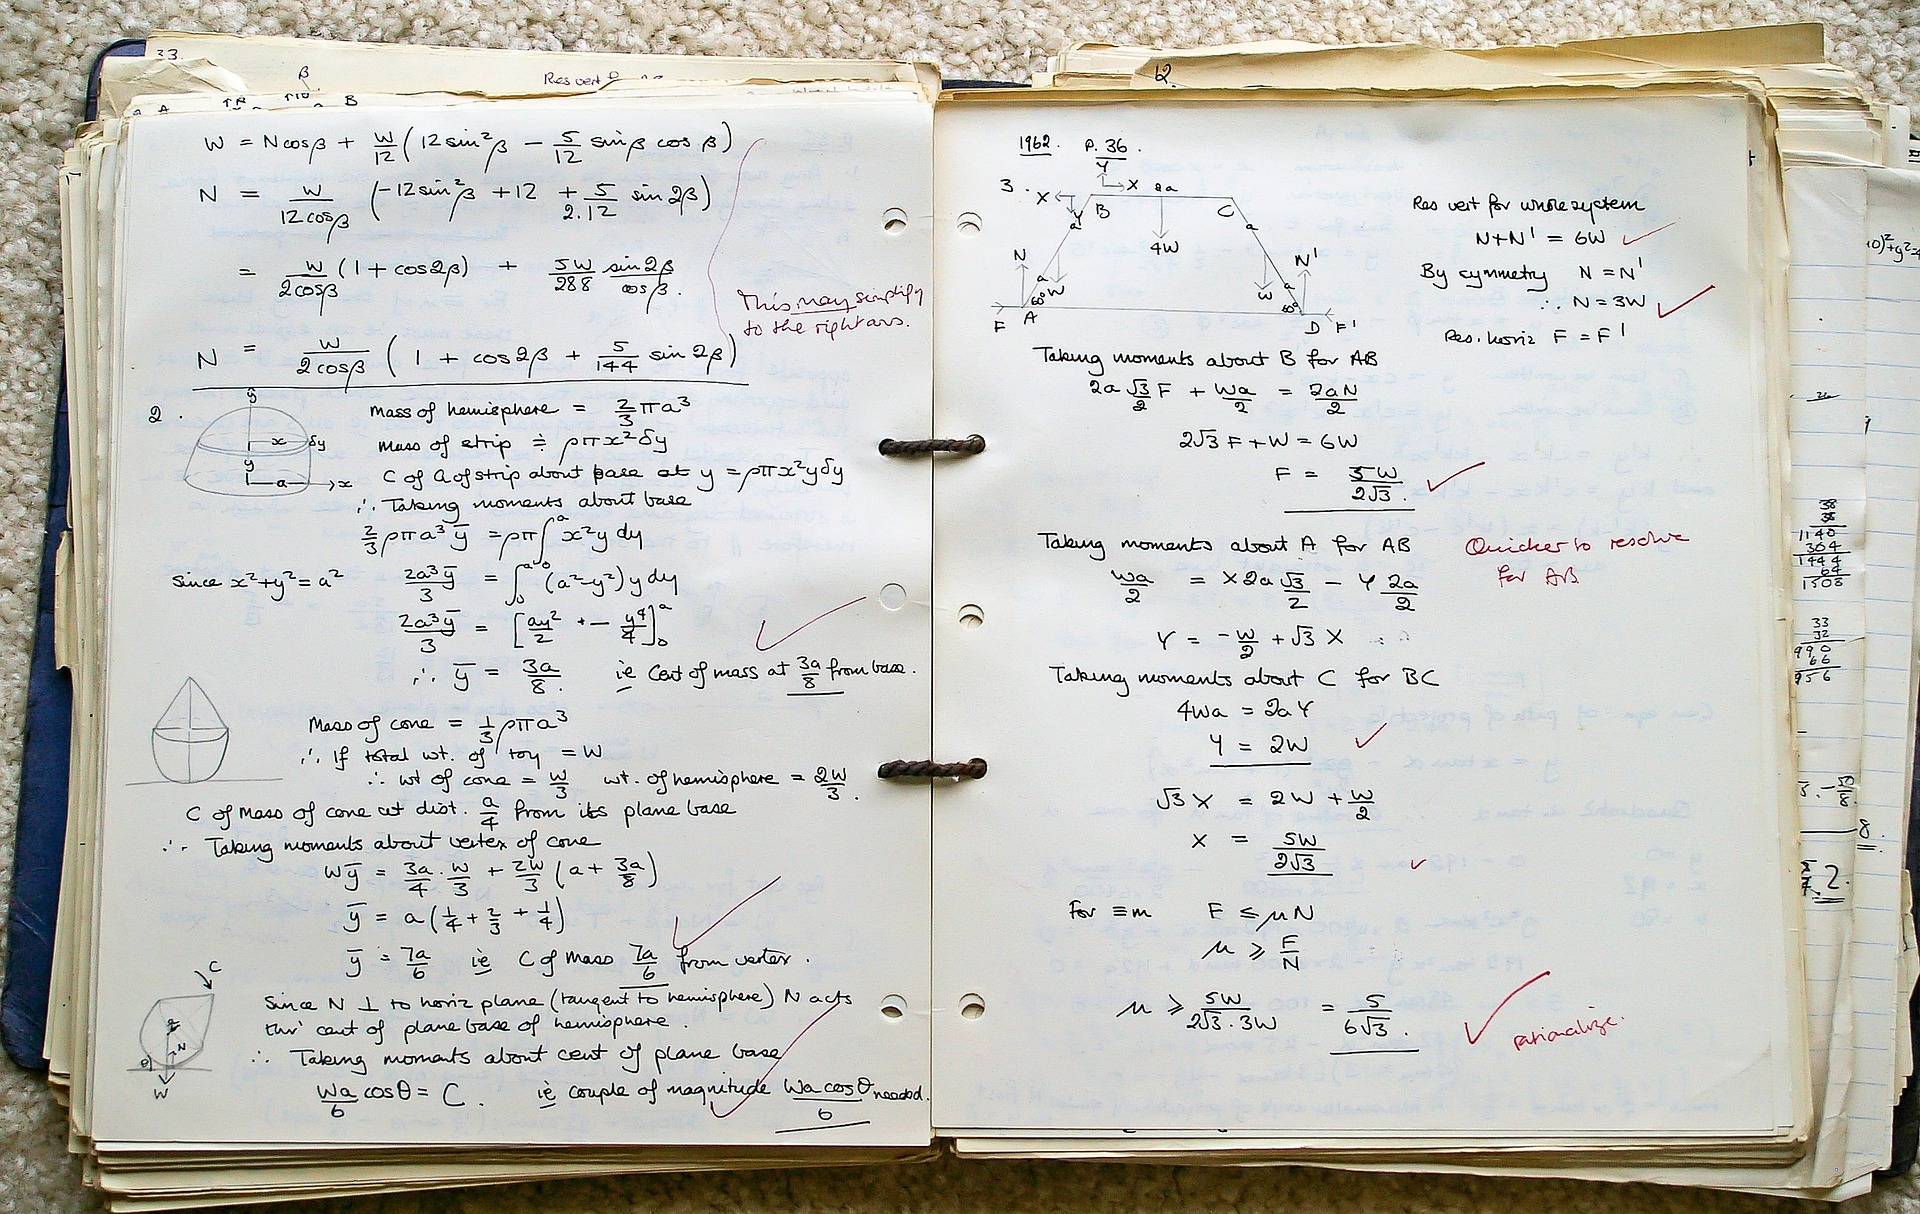 33.
β
Res vert
A
B
W = Ncosβ + W/12 (12sin²β − 5/12 sinβ cosβ)
N = W/12cosβ (−12sin²β + 12 + 5/2.12 sin2β)
= W/2cosβ (1 + cos2β) + 5W/288 sin2β/cosβ.
This may simplify
to the right ans.
N = W/2cosβ (1 + cos2β + 5/144 sin2β)
2.
y
x δy
y
a x
Mass of hemisphere = 2/3 πa³
Mass of strip ≑ ρπx²δy
C of G of strip about base at y = ρπx²yδy
∴ Taking moments about base
2/3 ρπa³ȳ = ρπ∫ᵃ₀ x²y dy
Since x²+y²=a² 2a³ȳ/3 = ∫ᵃ₀ (a²−y²) y dy
2a³ȳ/3 = [ay²/2 − y⁴/4]ᵃ₀
∴ ȳ = 3a/8. ie Cent of mass at 3a/8 from base.
Mass of cone = 1/3 ρπa³
∴ If total wt. of toy = W
∴ wt of cone = W/3 wt. of hemisphere = 2W/3.
C of Mass of cone at dist. a/4 from its plane base
∴ Taking moments about vertex of cone
Wȳ = 3a/4 . W/3 + 2W/3 (a + 3a/8)
ȳ = a(1/4 + 2/3 + 1/4)
ȳ = 7a/6 ie C of Mass 7a/6 from vertex.
C
N
θ
W
Since N ⊥ to horiz plane (tangent to hemisphere) N acts
thr' cent of plane base of hemisphere.
∴ Taking moments about cent of plane base
Wa/6 cosθ = C. ie couple of magnitude Wa cosθ/6 needed.
12
1962. P. 36.
3.
Y
X X 2a
Y B C
a a
4W
N N'
a W W a
60° 60°
F A D F'
Res vert for whole system
N+N' = 6W
By symmetry N = N'
∴ N = 3W
Res. horiz F = F'
Taking moments about B for AB
2a √3/2 F + Wa/2 = 2aN/2
2√3 F + W = 6W
F = 5W/2√3.
Taking moments about A for AB
Quicker to resolve
for AB
Wa/2 = X2a √3/2 − Y 2a/2
Y = −W/2 + √3 X
Taking moments about C for BC
4Wa = 2aY
Y = 2W
√3 X = 2W + W/2
X = 5W/2√3
For ≡m F ≤ μN
μ ≥ F/N
μ ≥ 5W/2√3 . 3W = 5/6√3.
rationalize.
38
38
1140
304
1444
64
1508
33
32
990
66
956
8.
2.